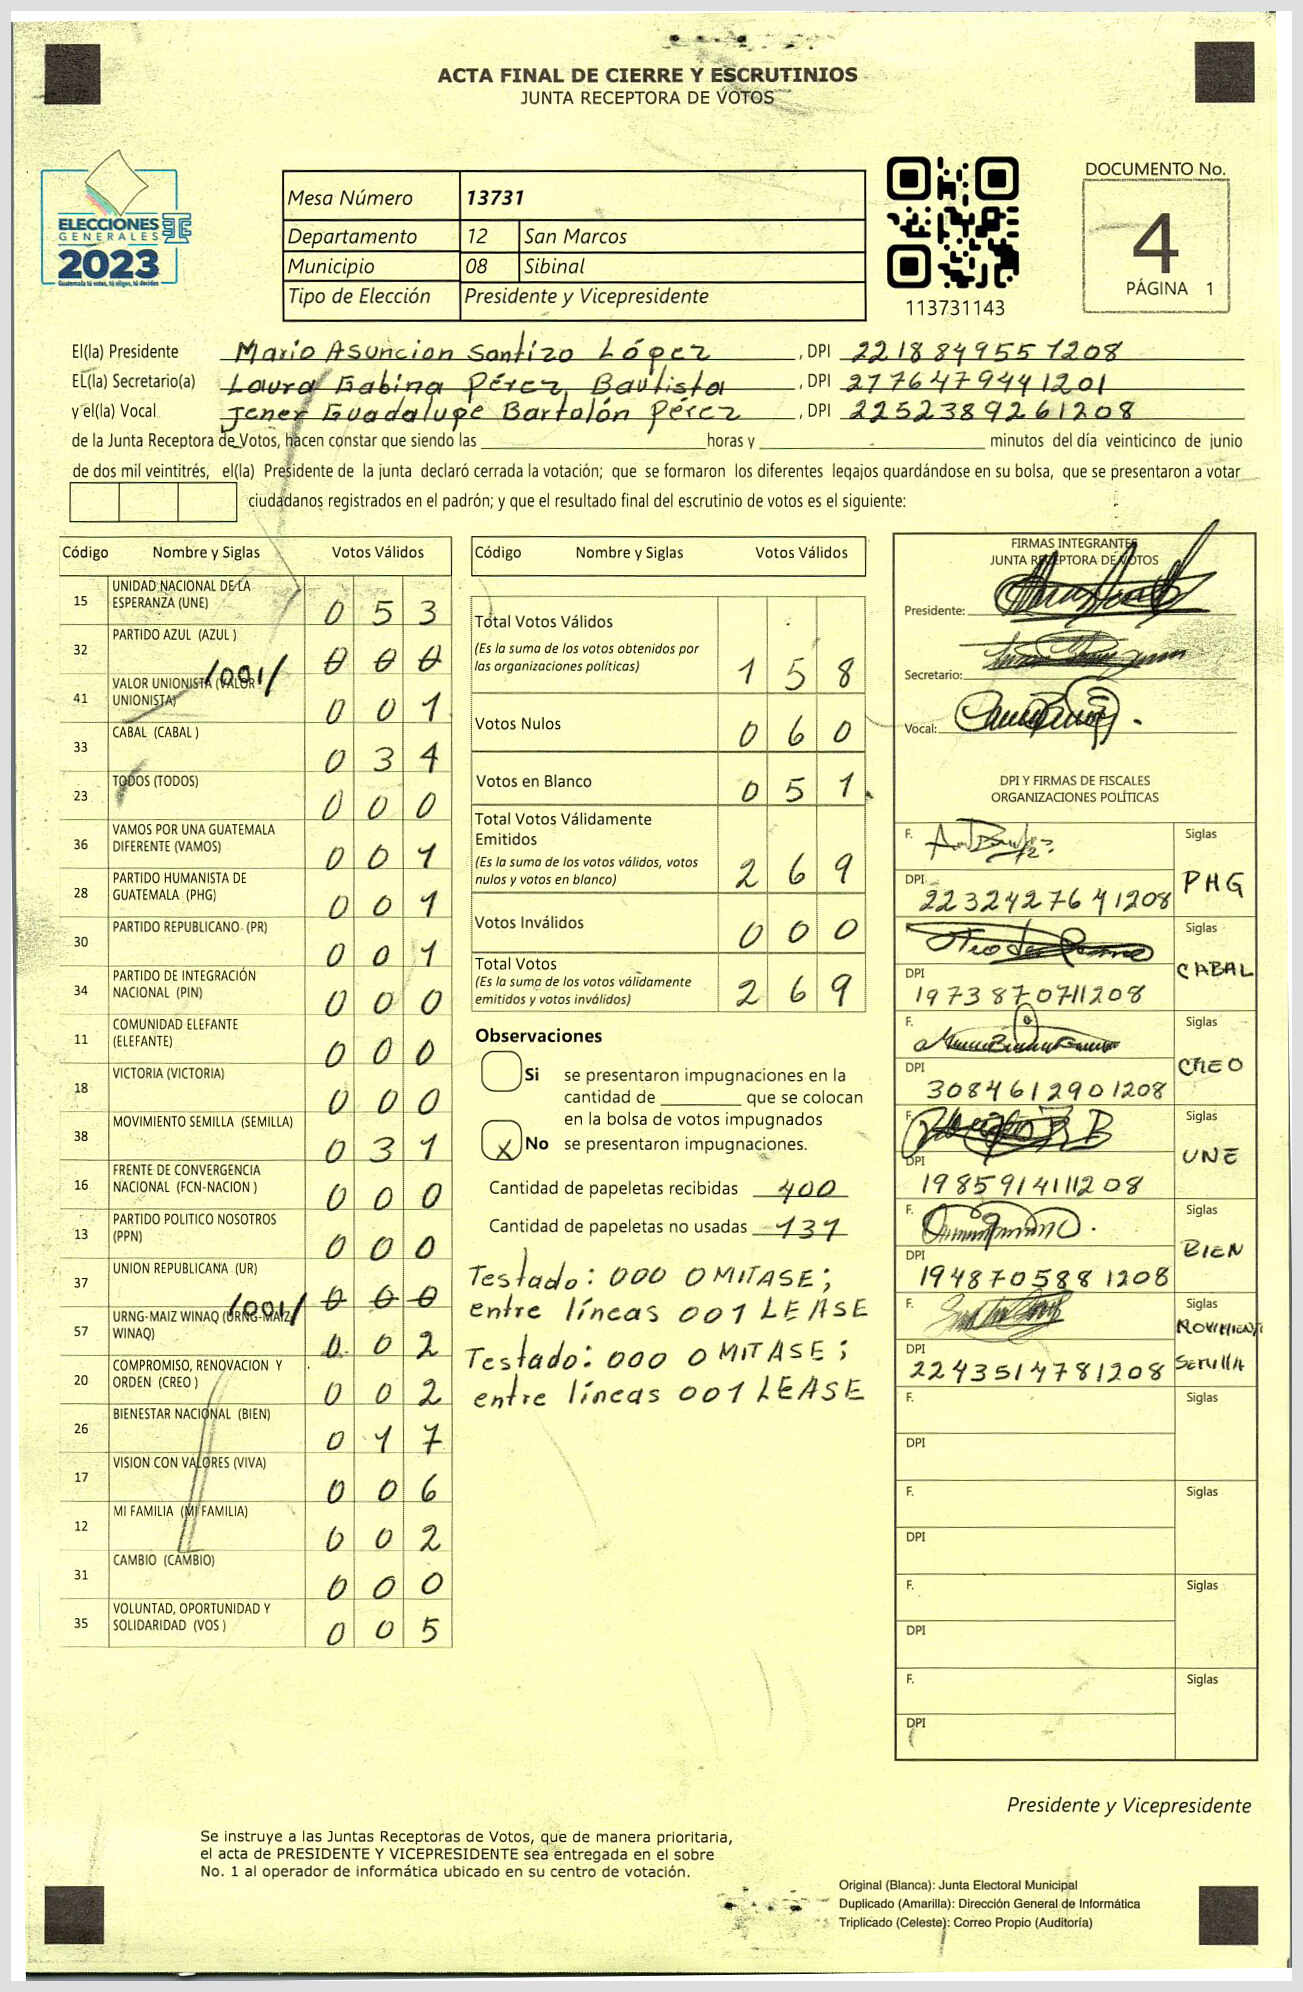 ACTA FINAL DE CIERRE Y ESCRUTINIOS
JUNTA RECEPTORA DE VOTOS
ELECCIONES
GENERALES
2023
Guatemala tú votas, tú eliges, tú decides
Mesa Número 13731
Departamento 12 San Marcos
Municipio 08 Sibinal
Tipo de Elección Presidente y Vicepresidente
113731143
DOCUMENTO No.
4
PÁGINA 1
El(la) Presidente Mario Asuncion Santizo López, DPI 2218849551208
EL(la) Secretario(a) Laura Gabina Pérez Bautista, DPI 2776479441201
y el(la) Vocal Jener Guadalupe Bartolón Pérez, DPI 2252389261208
de la Junta Receptora de Votos, hacen constar que siendo las horas y minutos del día veinticinco de junio
de dos mil veintitrés, el(la) Presidente de la junta declaró cerrada la votación; que se formaron los diferentes legajos guardándose en su bolsa, que se presentaron a votar
ciudadanos registrados en el padrón; y que el resultado final del escrutinio de votos es el siguiente:
Código Nombre y Siglas Votos Válidos
15 UNIDAD NACIONAL DE LA
ESPERANZA (UNE) 0 5 3
32 PARTIDO AZUL (AZUL ) 0 0 0
/001/
41 VALOR UNIONISTA (VALOR
UNIONISTA) 0 0 1
33 CABAL (CABAL ) 0 3 4
23 TODOS (TODOS) 0 0 0
36 VAMOS POR UNA GUATEMALA
DIFERENTE (VAMOS) 0 0 1
28 PARTIDO HUMANISTA DE
GUATEMALA (PHG) 0 0 1
30 PARTIDO REPUBLICANO (PR) 0 0 1
34 PARTIDO DE INTEGRACIÓN
NACIONAL (PIN) 0 0 0
11 COMUNIDAD ELEFANTE
(ELEFANTE) 0 0 0
18 VICTORIA (VICTORIA) 0 0 0
38 MOVIMIENTO SEMILLA (SEMILLA) 0 3 1
16 FRENTE DE CONVERGENCIA
NACIONAL (FCN-NACION ) 0 0 0
13 PARTIDO POLITICO NOSOTROS
(PPN) 0 0 0
37 UNION REPUBLICANA (UR) 0 0 0
/001/
57 URNG-MAIZ WINAQ (URNG-MAIZ
WINAQ) 0 0 2
20 COMPROMISO, RENOVACION Y
ORDEN (CREO ) 0 0 2
26 BIENESTAR NACIONAL (BIEN) 0 1 7
17 VISION CON VALORES (VIVA) 0 0 6
12 MI FAMILIA (MI FAMILIA) 0 0 2
31 CAMBIO (CAMBIO) 0 0 0
35 VOLUNTAD, OPORTUNIDAD Y
SOLIDARIDAD (VOS ) 0 0 5
Código Nombre y Siglas Votos Válidos
Total Votos Válidos
(Es la suma de los votos obtenidos por
las organizaciones políticas) 1 5 8
Votos Nulos 0 6 0
Votos en Blanco 0 5 1
Total Votos Válidamente
Emitidos
(Es la suma de los votos válidos, votos
nulos y votos en blanco) 2 6 9
Votos Inválidos 0 0 0
Total Votos
(Es la suma de los votos válidamente
emitidos y votos inválidos) 2 6 9
Observaciones
Si se presentaron impugnaciones en la
cantidad de que se colocan
en la bolsa de votos impugnados
X No se presentaron impugnaciones.
Cantidad de papeletas recibidas 400
Cantidad de papeletas no usadas 131
Testado: 000 OMITASE;
entre líneas 001 LEASE
Testado: 000 OMITASE;
entre líneas 001 LEASE
FIRMAS INTEGRANTES
JUNTA RECEPTORA DE VOTOS
Presidente:
Secretario:
Vocal:
DPI Y FIRMAS DE FISCALES
ORGANIZACIONES POLÍTICAS
F. Siglas
PHG
DPI
2232427641208
F. Siglas
CABAL
DPI
1973870711208
F. Siglas
CREO
DPI
3084612901208
F. Siglas
UNE
DPI
1985914111208
F. Siglas
BIEN
DPI
1948705881208
F. Siglas
MOVIMIENT
DPI SEMILLA
2243514781208
F. Siglas
DPI
F. Siglas
DPI
F. Siglas
DPI
F. Siglas
DPI
Presidente y Vicepresidente
Se instruye a las Juntas Receptoras de Votos, que de manera prioritaria,
el acta de PRESIDENTE Y VICEPRESIDENTE sea entregada en el sobre
No. 1 al operador de informática ubicado en su centro de votación.
Original (Blanca): Junta Electoral Municipal
Duplicado (Amarilla): Dirección General de Informática
Triplicado (Celeste): Correo Propio (Auditoría)